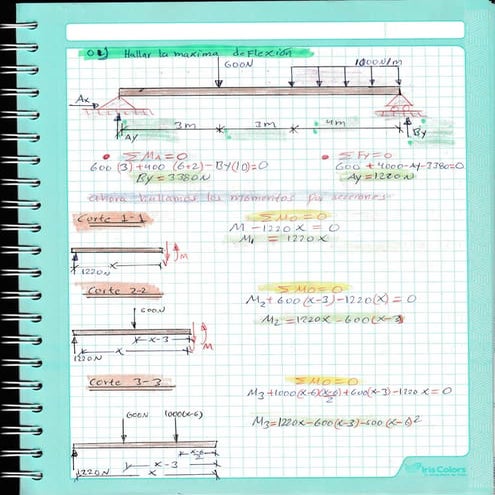 02) Hallar la maxima deflexión
600N
1000N/m
Ax
3m
3m
4m
Ay
By
• ΣMA=0
600(3)+400(6+2)-By(10)=0
By=3380N
• ΣFy=0
600+4000-Ay-3380=0
Ay=1220N
ahora hallamos los momentos por secciones
Corte 1-1
ΣMO=0
M-1220x=0
M1=1220x
M
x
1220N
Corte 2-2
ΣMO=0
600N
M2+600(x-3)-1220(x)=0
M2=1220x-600(x-3)
x-3
x
M
1220N
Corte 3-3
ΣMO=0
M3+1000(x-6)(x-6)/2+600(x-3)-1220x=0
600N
1000(x-6)
M3=1220x-600(x-3)-500(x-6)²
x-3
1220N
x
Iris Colors